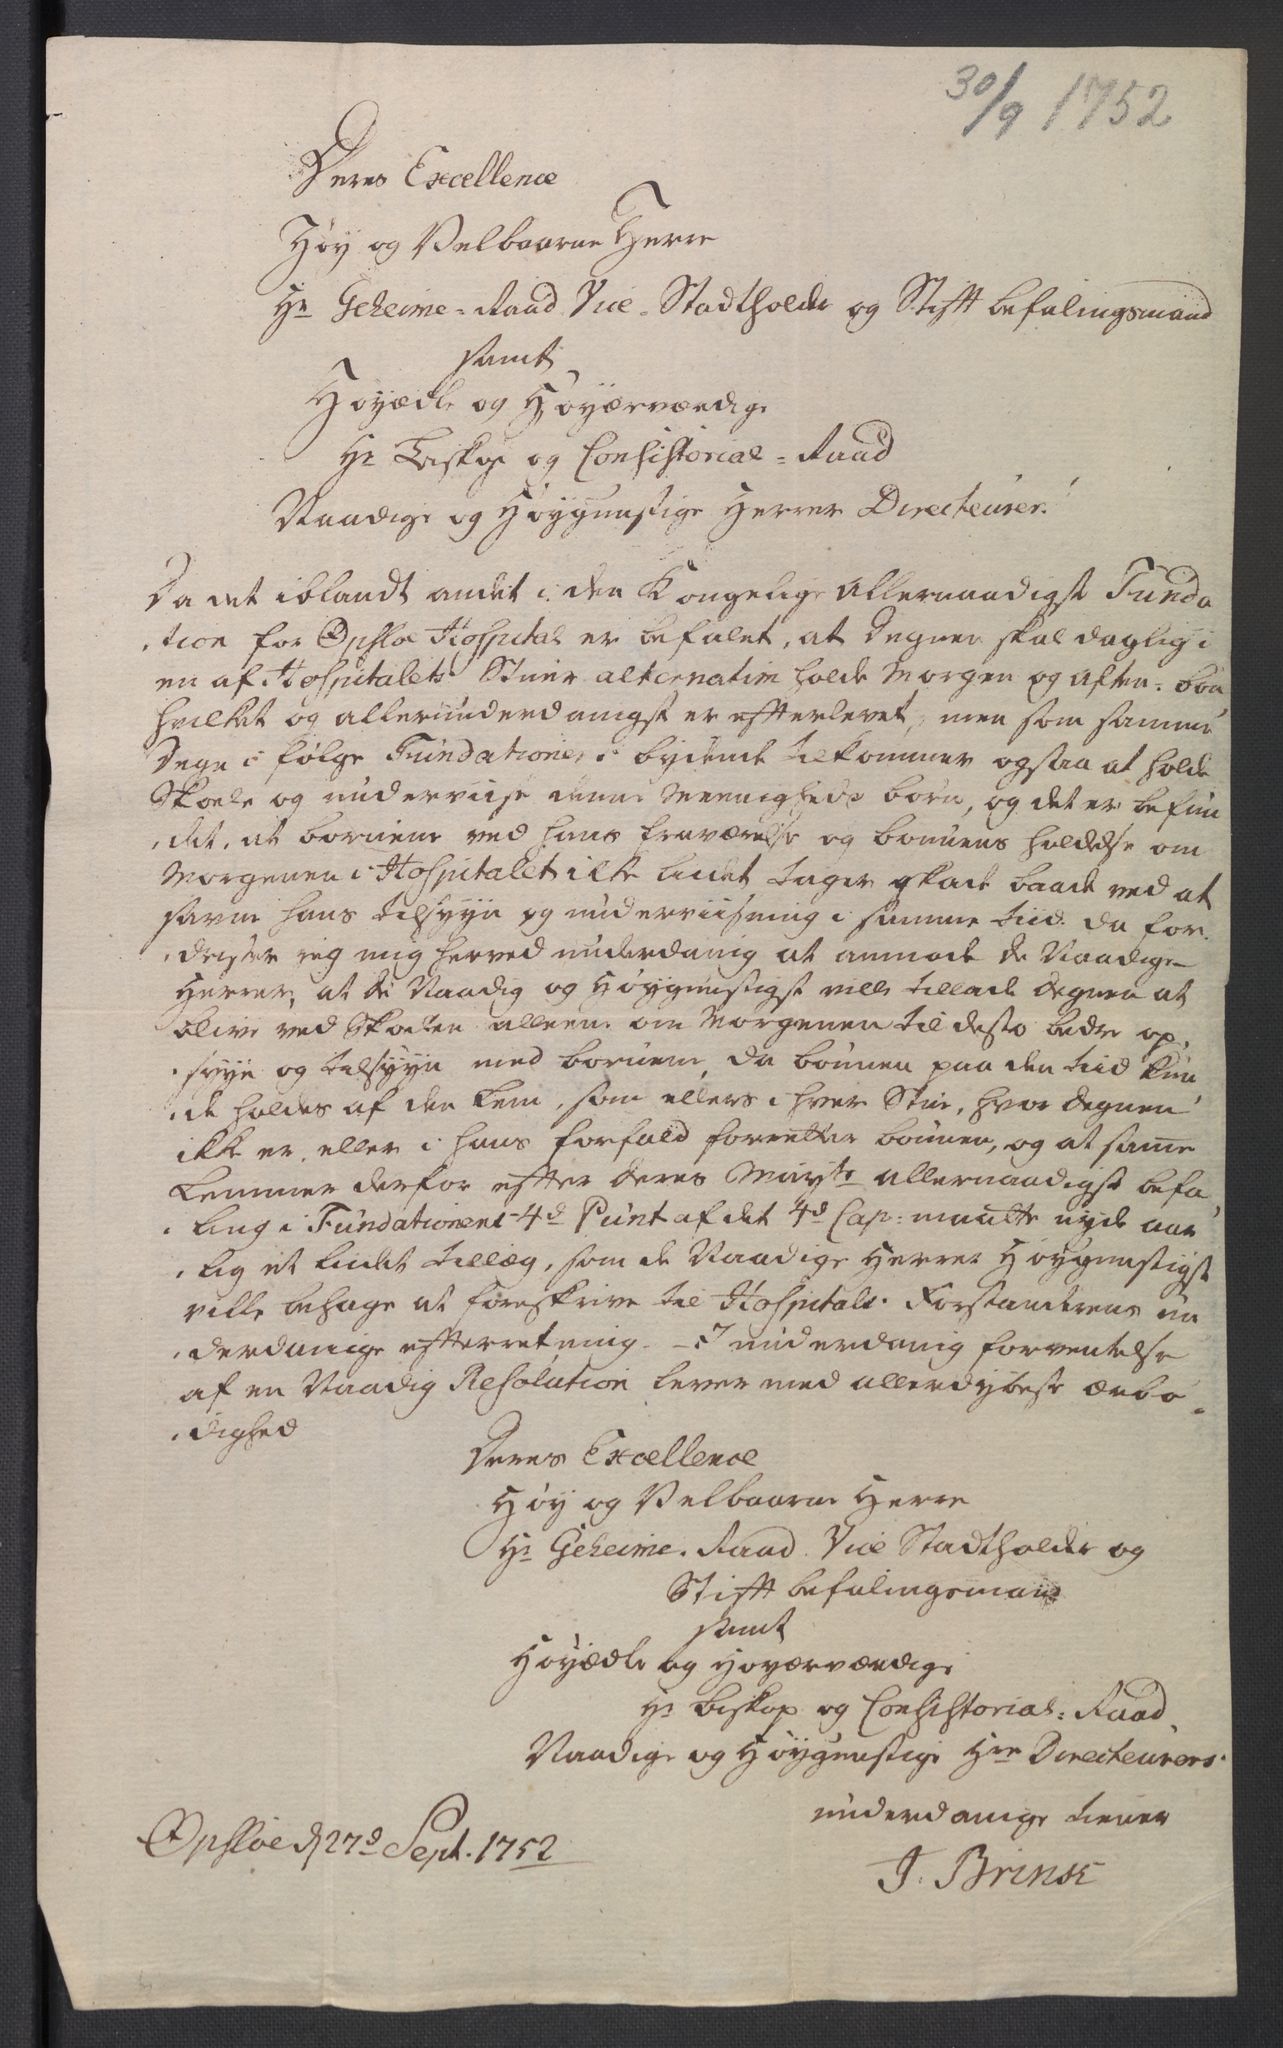 30/9 1752
Deres Excellence
Høy og Velbaarne Herre
Hr Geheime-Raad Vice-Stadtholder og Stifft befalingsmand
samt
Høyædle og Høyærværdige
Hr Biskop og Consistorial-Raad
Naadige og Høygunstige Herrer Directeurer!
Da det iblandt andet i den Kongelige allernaadigst Funda
tion for Opsloe Hospital er befalet, at Degnen skal daglig i
en af Hospitalets Stuer alternatim holde Morgen og Aften-bøn
hvilket og allerunderdanigst er efterlevet, men som samme
Degn i følge Fundationens bydende tilkommer ogsaa at holde
Skoele og underviise denne Meenigheds børn, og det er befun
det, at børnene ved hans fraværelse og bønnens holdelse om
Morgenen i Hospitalet ikke lidet tager skade baade ved at
savne hans tilsyyn og underviisning i samme tiid. da for
drister ieg mig herved underdanig at anmode de Naadige
Herrer, at de Naadig og Høygunstigst ville tillade degnen at
blive ved Skoelen alleene om Morgenen til desto bedre op
syyn og tilsyyn med børnene, da bønnen paa den tiid kun
de holdes af den Lem, som ellers i hver Stue, hvor degnen
ikke er, eller i hans forfald forretter bønnen, og at same
Lemmer derfor efter Deres Mayts allernaadigste befa
ling i Fundationens 4d Punt af det 4d Cap: maatte nyde aar
lig et lidet tillæg, som de Naadige Herrer Høygunstigst
ville behage at foreskrive til Hospitals Forstanderens un
derdanige efterretning. - I underdanig forventelse
af en Naadig Resolution lever med allerdybeste ærbø
dighed
Deres Excellence
Høy og Velbaarne Herre
Hr Geheime-Raad Vice Stadtholder og
Stifft befalingsmand
samt
Høyædle og Høyærværdige
Hr Biskop og Consistorial-Raad
Naadige og Høygunstige Hrr Directeurers
underdanige tiener
J. Brinck
Opsloe d 27d Sept. 1752